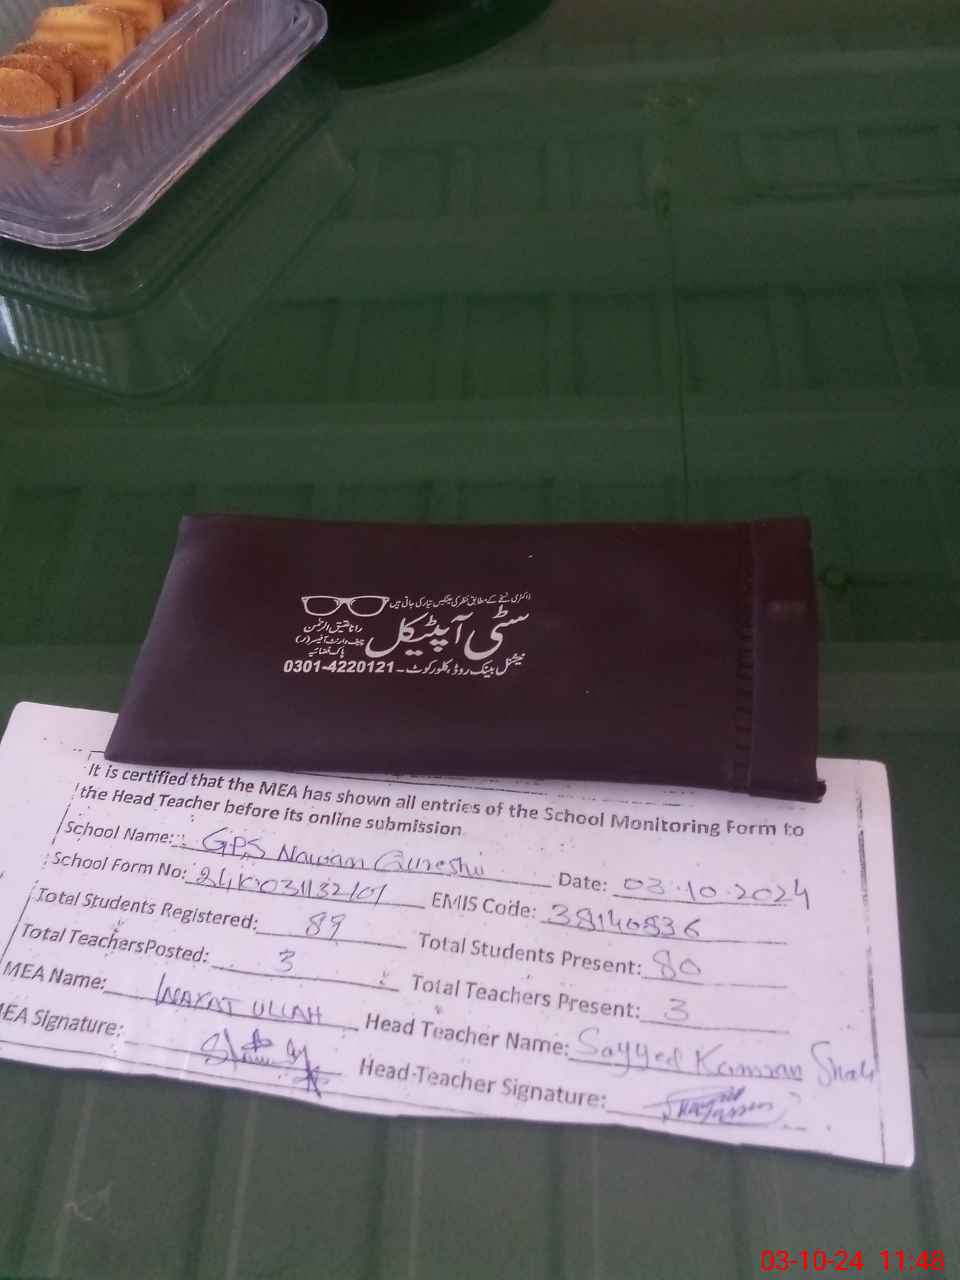 ڈاکٹری نسخے کے مطابق نظر کی عینکیں تیار کی جاتی ہیں
سٹی آپٹیکل
رانا عتیق الرحمٰن
چیف وارنٹ آفیسر (ر)
پاک فضائیہ
نیشنل بینک روڈ، کلورکوٹ - 0301-4220121
It is certified that the MEA has shown all entries of the School Monitoring Form to
the Head Teacher before its online submission
School Name: GPS Nawan Qureshi Date: 03.10.2024
School Form No: EMIS Code: 38140836
Total Students Registered: 89 Total Students Present: 80
Total TeachersPosted: 3 Total Teachers Present: 3
MEA Name: INAYAT ULLAH Head Teacher Name: Sayyed Kamran Shah
MEA Signature: Head-Teacher Signature:
03-10-24 11:48